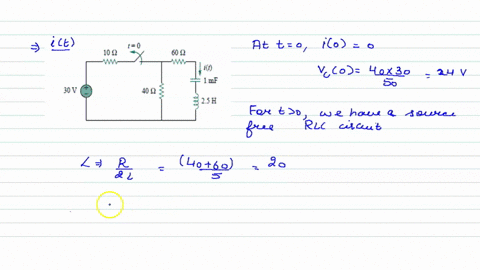 ⇒ i(t)
10 Ω
t = 0
60 Ω
i(t)
1 mF
30 V
40 Ω
2.5 H
At t=0, i(0) = 0
Vc(0) = 40×30/50 = 24 V
For t>0, we have a source
free RLC circuit
α ⇒ R/2L = (40+60)/5 = 20